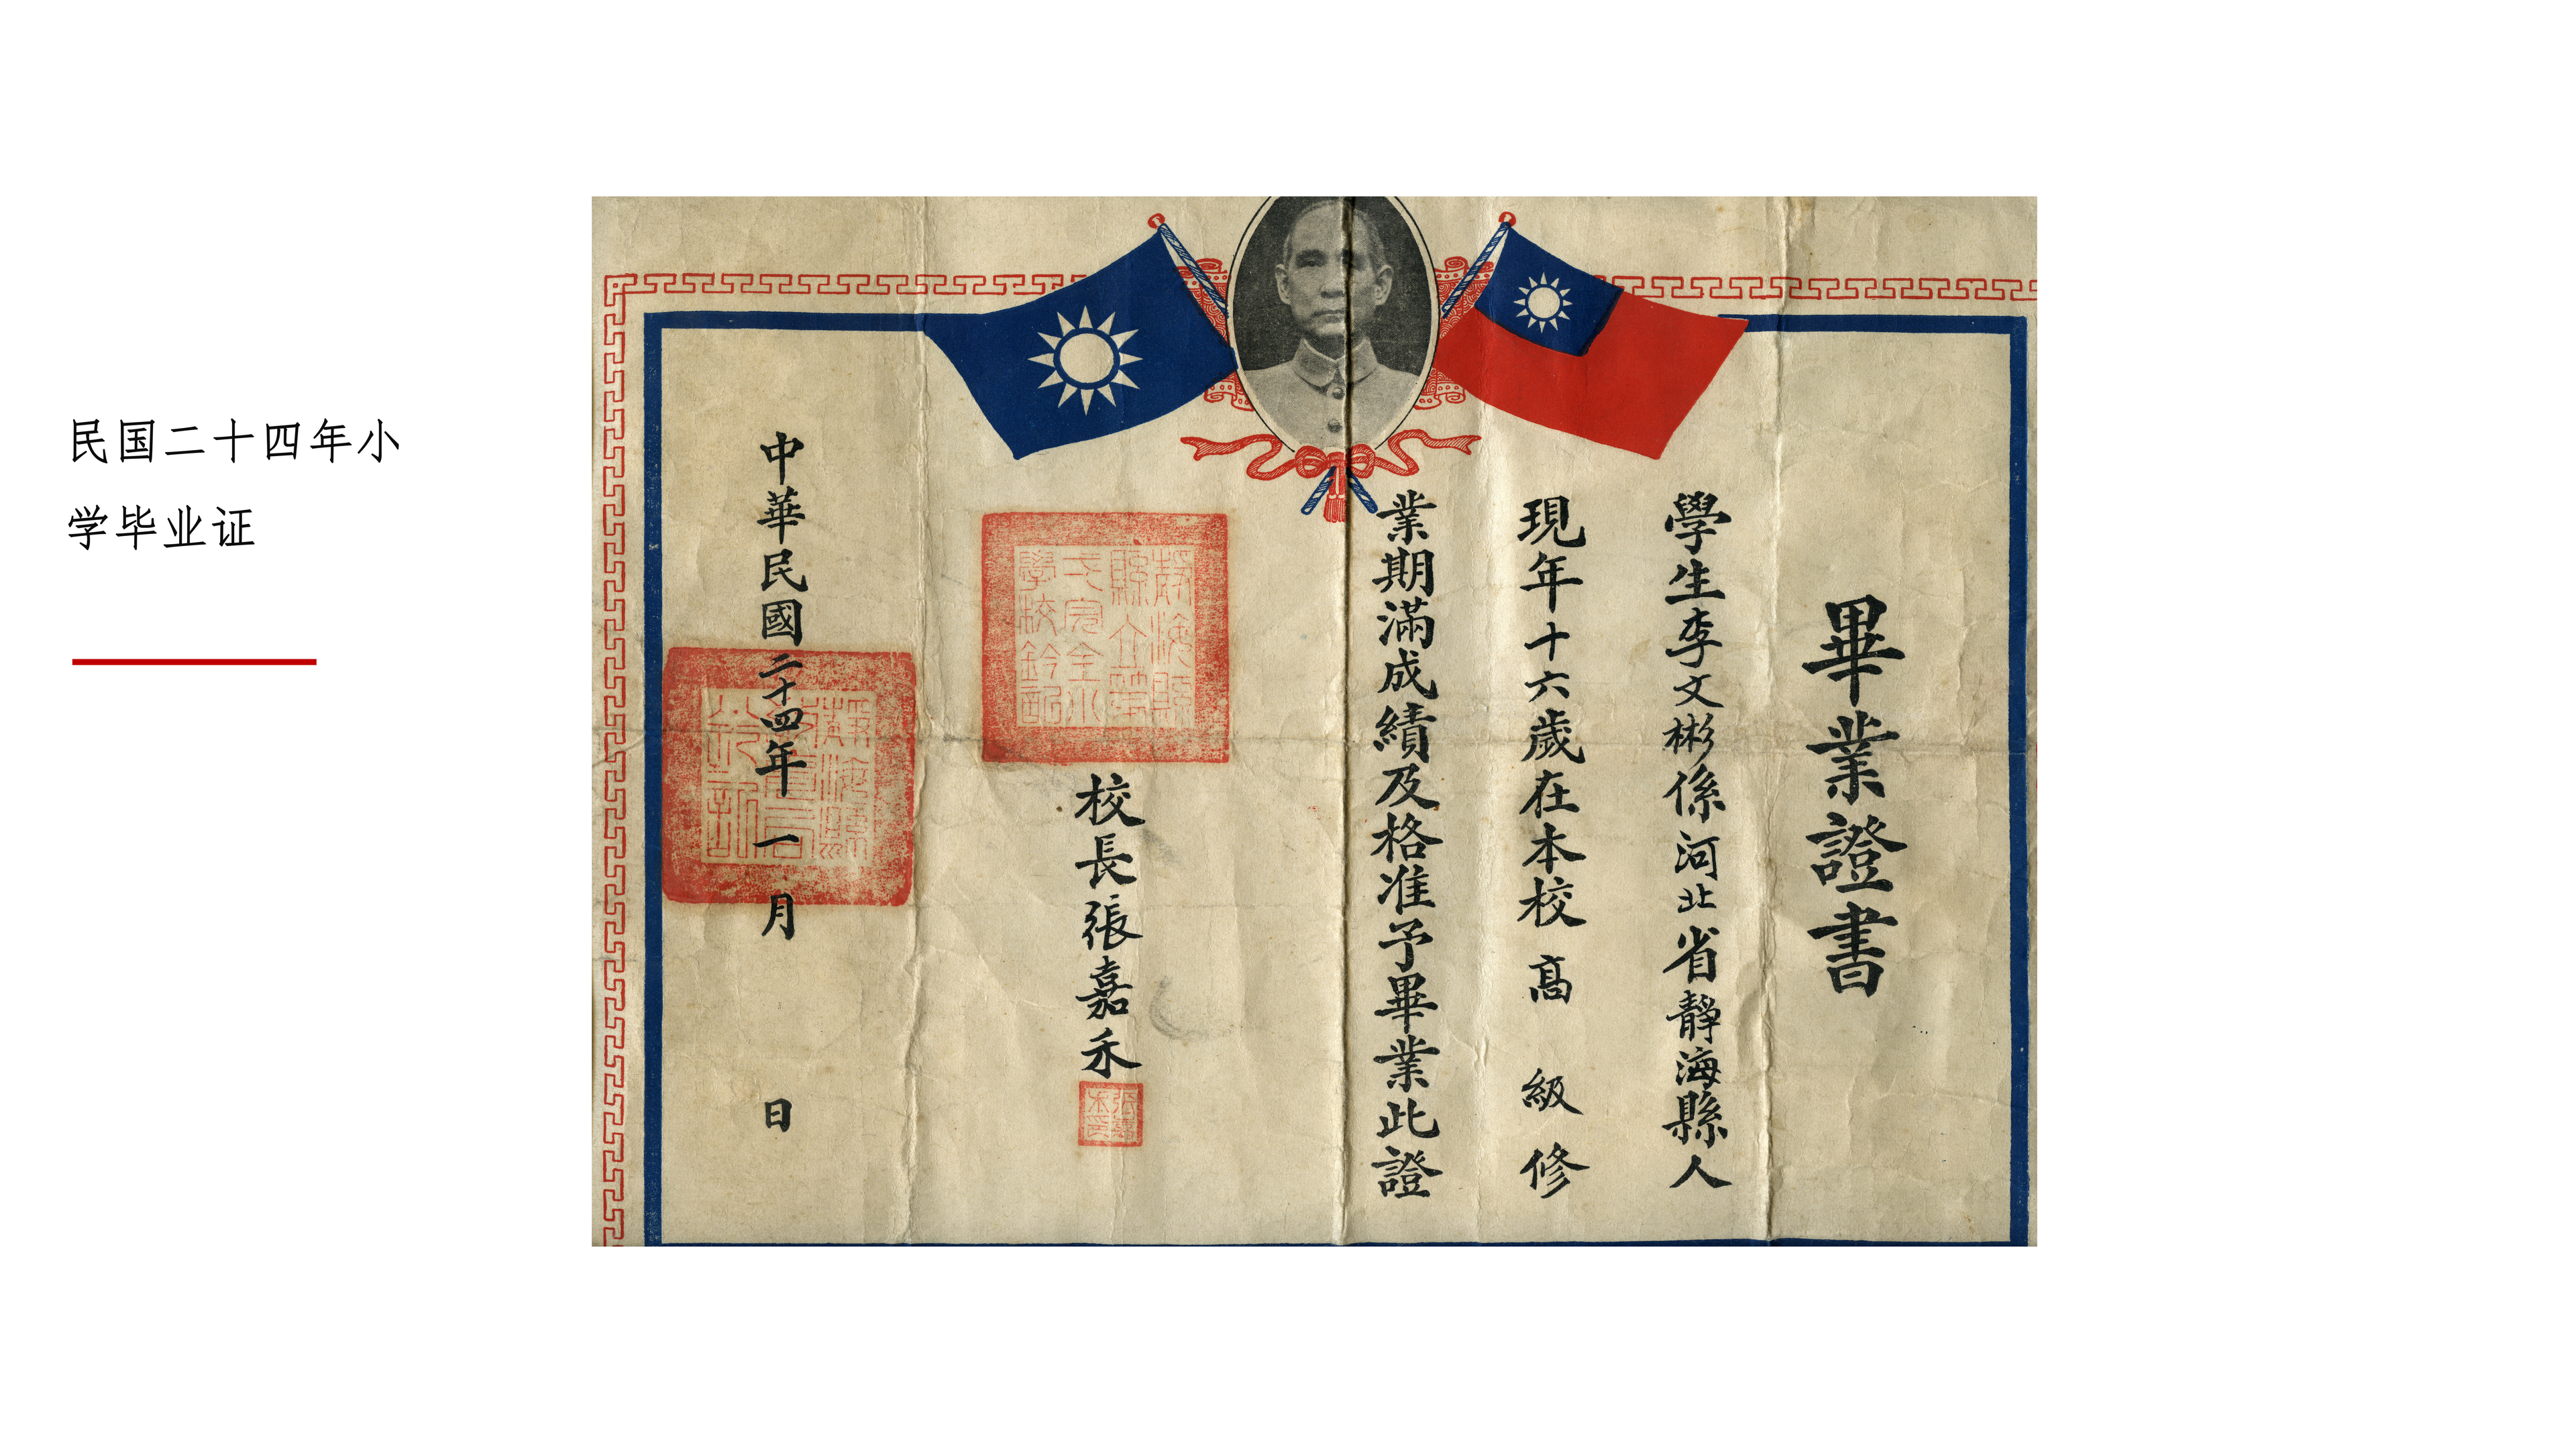 民国二十四年小
学毕业证
畢業證書
學生李文彬係河北省靜海縣人
現年十六歲在本校高級修
業期滿成績及格准予畢業此證
校長張嘉禾
中華民國二十四年一月日